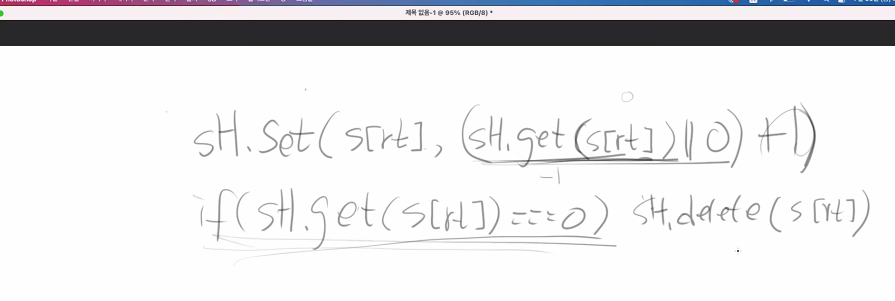 제목 없음-1 @ 95% (RGB/8) *
sH.set(s[rt], (sH.get(s[rt])||0)+1)
-1
if(sH.get(s[rt])===0) sH.delete(s[rt])